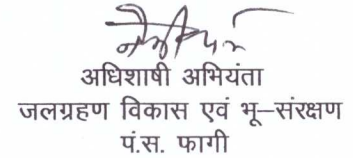 अधिशाषी अभियंता
जलग्रहण विकास एवं भू–संरक्षण
पं.स. फागी